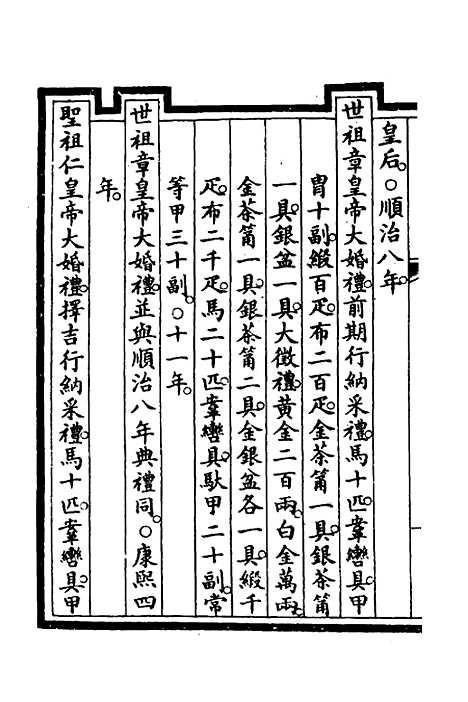 皇后。○順治八年。
世祖章皇帝大婚禮。前期行納采禮。馬十匹。鞌轡具。甲
胄十副。緞百疋。布二百疋。金茶筩一具。銀茶筩
一具。銀盆一具。大徵禮。黃金二百兩。白金萬兩。
金茶筩一具。銀茶筩二具。金銀盆各一具。緞千
疋。布二千疋。馬二十匹。鞌轡具。馱甲二十副。常
等甲三十副。○十一年。
世祖章皇帝大婚禮。並與順治八年典禮同。○康熙四
年。
聖祖仁皇帝大婚禮。擇吉行納采禮。馬十匹。鞌轡具。甲